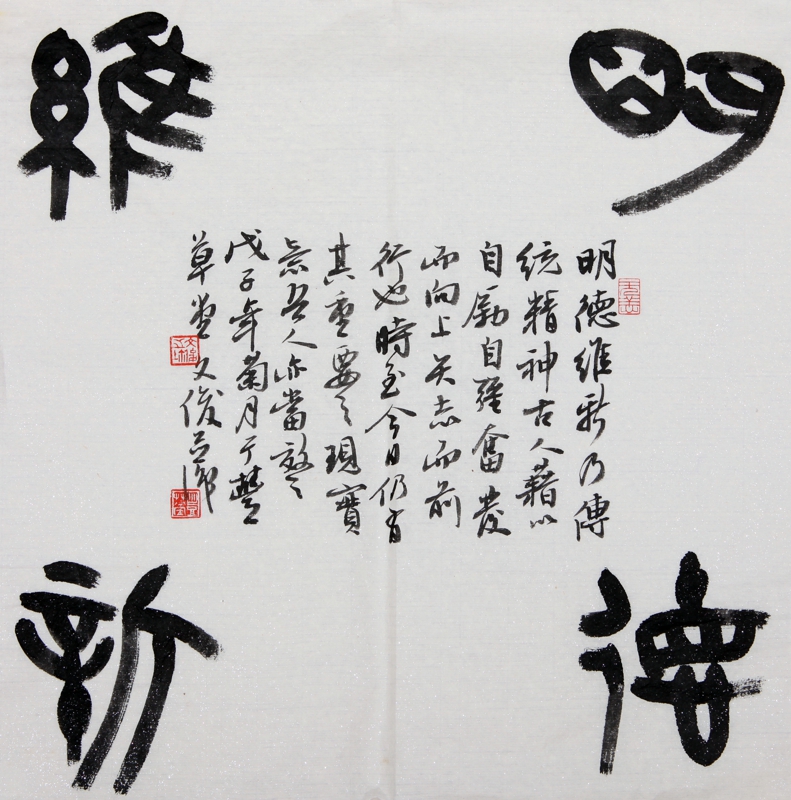 明
德
維
新
明德維新乃傳
統精神古人藉以
自勵自強奮發
而向上矢志而前
行也時至今日仍有
其重要之現實
意吾人亦當效之
戊子年菊月于豐
草堂文俊